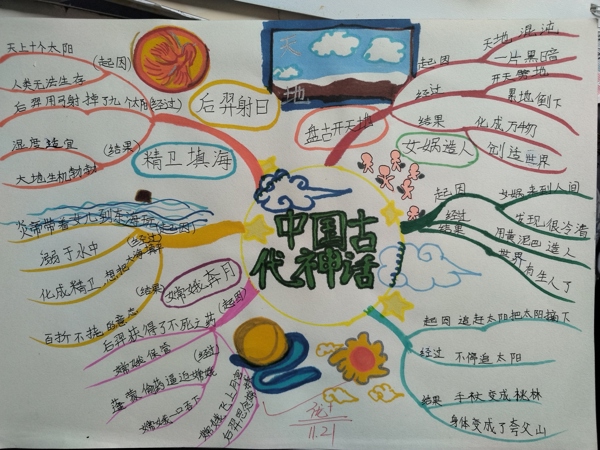 中国古
代神话
天
地
盘古开天地
起因
天地混沌
一片黑暗
经过
开天辟地
累地倒下
结果
化成万物
创造世界
女娲造人
起因
女娲来到人间
发现很冷清
经过
用黄泥巴造人
结果
世界上有生人了
起因
追赶太阳把太阳摘下
经过
不停追太阳
结果
手杖变成桃林
身体变成了夸父山
后羿射日
天上十个太阳
(起因)
人类无法生存
后羿用弓射掉了九个太阳
(经过)
温度适宜
(结果)
大地生机勃勃
精卫填海
炎帝带着女儿到东海玩
(起因)
溺于水中
(经过)
化成精卫,想把海填平
(结果)
百折不挠的意志
嫦娥奔月
(起因)
后羿获得了不死之药
嫦娥保管
(经过)
逢蒙偷药逼迫嫦娥
嫦娥一口吞下
(结果)
嫦娥飞上月宫
11.21